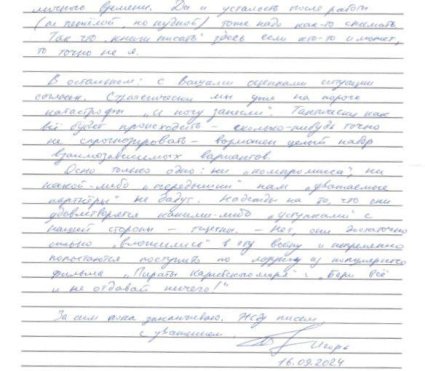 личного времени. Да и усталость после работы
(не тяжёлой, но нудной) тоже надо как-то снимать.
Так что "книги писать" здесь если кто-то и может,
то точно не я.
В остальном: с Вашими оценками ситуации
согласен. Стратегически мы уже на пороге
катастрофы, "и ногу занесли". Тактически как
всё будет происходить – сколько-нибудь точно
не спрогнозировать – возможен целый набор
взаимозависимых вариантов.
Ясно только одно: ни "компромисса", ни
какой-либо "передышки" нам "уважаемые
партнёры" не дадут. Надежды на то, что они
удовлетворятся какими-либо "уступками" с
нашей стороны – тщетны. – Нет, они достаточно
сильно "вложились" в эту войну и непременно
попытаются поступить по лозунгу из популярного
фильма "Пираты Карибского моря": "Бери всё
и не отдавай ничего!"
За сим пока заканчиваю. Жду писем,
с уважением, Игорь
16.09.2024